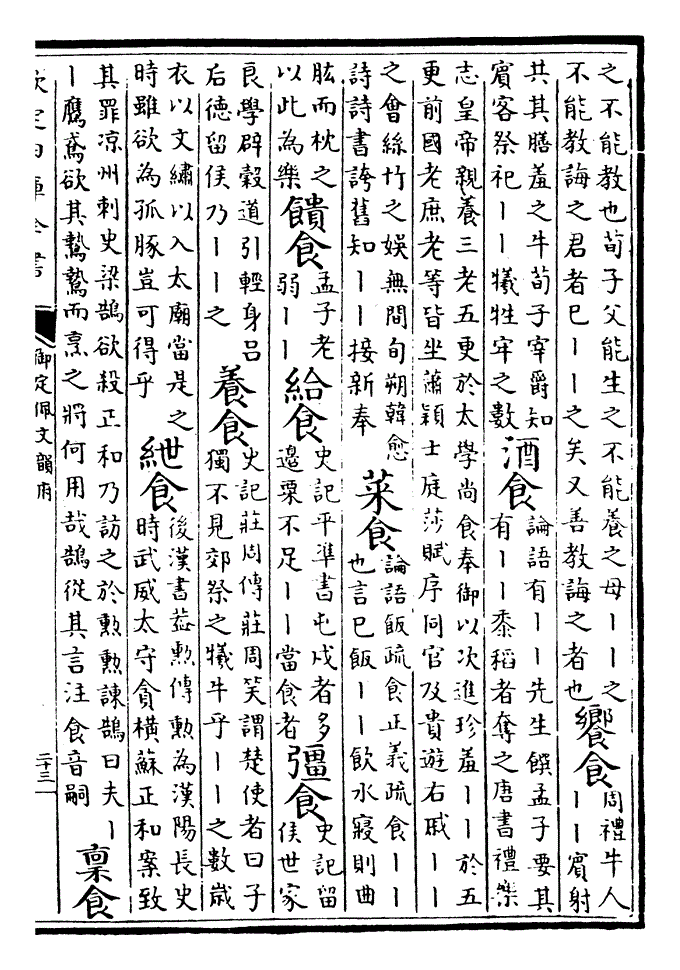 之不能教也荀子父能生之不能養之母丨丨之
不能教誨之君者已丨丨之矣又善教誨之者也
饗食
周禮牛人
丨丨賓射
共其膳羞之牛荀子宰爵知
賓客祭祀丨丨犧牲牢之數
酒食
論語有丨丨先生饌孟子要其
有丨丨黍稻者奪之唐書禮樂
志皇帝親養三老五更於太學尚食奉御以次進珍羞丨丨於五
更前國老庶老等皆坐蕭穎士庭莎賦序同官及貴遊右戚丨丨
之會絲竹之娛無間旬朔韓愈
詩詩書誇舊知丨丨接新奉
菜食
論語飯疏食正義疏食丨丨
也言已飯丨丨飲水寢則曲
肱而枕之
以此為樂
饋食
孟子老
弱丨丨
給食
史記平準書屯戍者多
邊粟不足丨丨當食者
彊食
史記留
侯世家
良學辟穀道引輕身吕
后德留侯乃丨丨之
養食
史記莊周傳莊周笑謂楚使者曰子
獨不見郊祭之犧牛乎丨丨之數歲
衣以文繡以入太廟當是之
時雖欲為孤豚豈可得乎
紲食
後漢書葢勲傳勲為漢陽長史
時武威太守貪橫蘇正和案致
其罪涼州刺史梁鵠欲殺正和乃訪之於勲勲諫鵠曰夫丨
丨鷹鳶欲其鷙鷙而烹之將何用哉鵠從其言注食音嗣
稟食
欽定四庫全書
御定佩文韻府
二十三